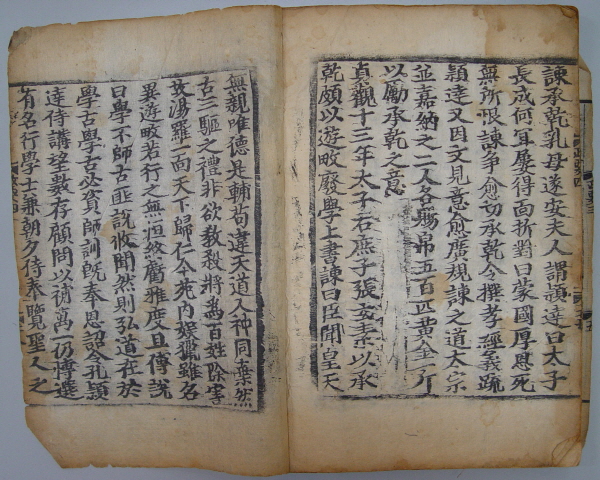 諫承乾乳母遂安夫人謂穎達曰太子
長成何宜屢得面折對曰蒙國厚恩死
無所恨諫爭愈切承乾令撰孝經義疏
穎達又因文見意愈廣規諫之道太宗
並嘉納之二人各賜帛五百匹黃金一斤
以勵承乾之意
貞觀十三年太子右庶子張玄素以承
乾頗以遊畋廢學上書諫曰臣聞皇天
無親唯德是輔苟違天道人神同棄然
古三驅之禮非欲教殺將爲百姓除害
故湯羅一面天下歸仁今苑內娛獵雖名
異遊畋若行之無恒終虧雅度且傅說
曰學不師古匪說攸聞然則弘道在於
學古學古必資師訓旣奉恩詔令孔穎
達侍講望數存顧問以補萬一仍博選
有名行學士兼朝夕侍奉覽聖人之